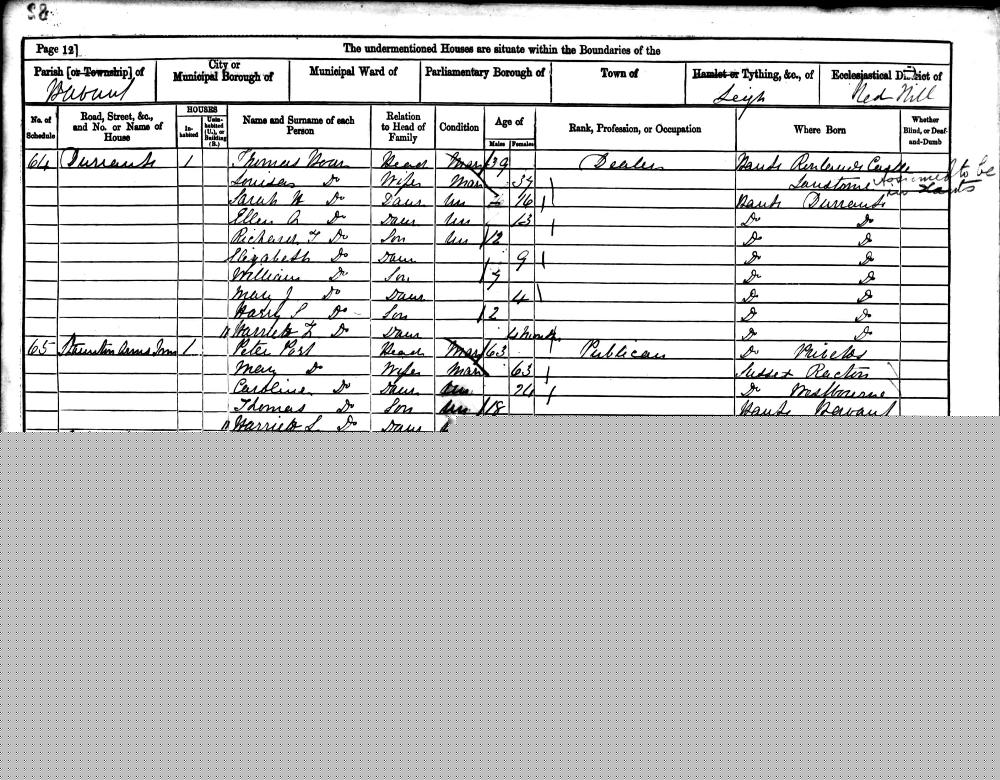 Page 12]
The undermentioned Houses are situate within the Boundaries of the
Parish [or Township] of
City or Municipal Borough of
Municipal Ward of
Parliamentary Borough of
Town of
Hamlet or Tything, &c., of
Ecclesiastical District of
Havant
Leigh
Red Hill
No. of Schedule
Road, Street, &c., and No. or Name of House
HOUSES
Inhabited
Uninhabited (U.), or Building (B.)
Name and Surname of each Person
Relation to Head of Family
Condition
Age of
Males
Females
Rank, Profession, or Occupation
Where Born
Whether Blind, or Deaf-and-Dumb
64 Durrants 1 Thomas Head Mar 39 Dealer Hants
Louisa Do Wife Mar 37 assumed to be in Hants
Sarah Do Daur Un 16 Hants Durrants
Ellen Do Daur Un 13 Do Do
Richard Do Son Un 12 Do Do
Elizabeth Do Daur 9 Do Do
William Do Son 7 Do Do
Mary J Do Daur 4 Do Do
Harry S Do Son 2 Do Do
Harriett Do Daur Do Do
65 Staunton Arms Inn 1 Peter Port Head Mar 63 Publican Do
Mary Do Wife Mar 63 Sussex Racton
Caroline Do Daur Un 24 Do Westbourne
Thomas Do Son Un 18 Hants Havant
Harriett L Do Daur